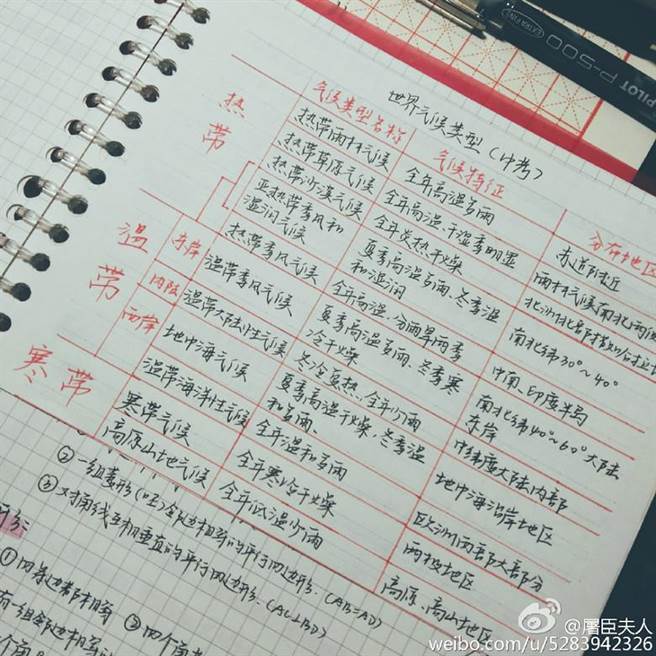 世界气候类型（中考）
气候类型名称 气候特征 分布地区
热带
热带雨林气候 全年高温多雨 赤道附近
热带草原气候 全年高温、干湿季明显 雨林气候南北两侧
热带沙漠气候 全年炎热干燥
亚热带季风和 夏季高温多雨、冬季温 南北纬30°~40°
湿润气候 和湿润
热带季风气候 全年高温、分雨旱两季 中南、印度半岛
温带
东岸 温带季风气候 夏季高温多雨、冬季寒 南北纬40°~60°大陆
冷干燥 东岸
内陆 温带大陆性气候 冬冷夏热、全年少雨 中纬度大陆内部
西岸 地中海气候 夏季高温干燥、冬季温 地中海沿岸地区
和多雨
温带海洋性气候 全年温和多雨 欧洲西部大部分
寒带
寒带气候 全年寒冷干燥 两极地区
高原山地气候 全年低温少雨 高原、高山地区
②一组
③对角线互相垂直的平行四边形.(AC⊥BD)
(AB=AD)
①四条边都相等 ②四个角
有一组邻边相等
PILOT P-500
EXTRA FINE
@屠臣夫人
weibo.com/u/5283942326